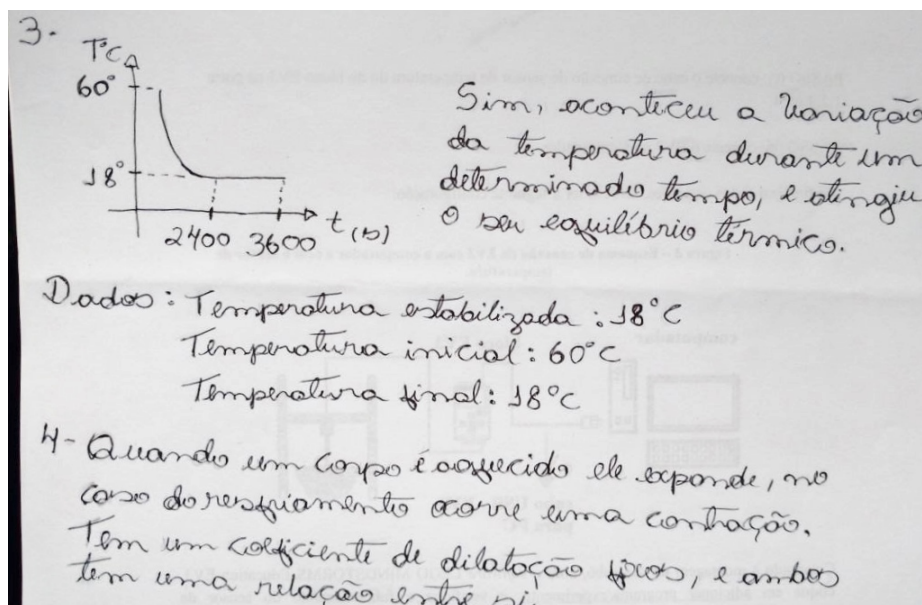 3.
T°C
60°
18°
2400 3600 t(s)
Sim, aconteceu a variação
da temperatura durante um
determinado tempo, e atingiu
o seu equilíbrio térmico.
Dados: Temperatura estabilizada: 18°C
Temperatura inicial: 60°C
Temperatura final: 18°C
4- Quando um corpo é aquecido ele expande, no
caso do resfriamento ocorre uma contração.
Tem um coeficiente de dilatação fixos, e ambos
tem uma relação entre si.